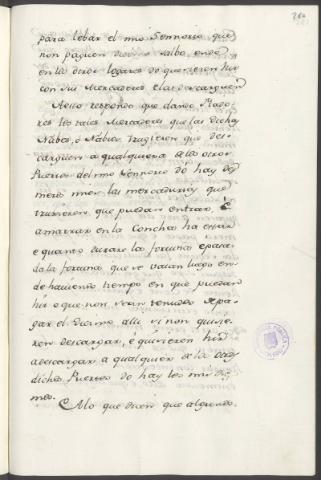 para lebar el mio Sennorio que
non paguen diesmo salbo, ende
en los otros logares do quisieren hir
con sus Mercaderias e las descarguen
Aesto respondo que dando Fiado-
res los tales Mercadores que las dichas
Nabes, o Nabios truxieren que des-
carguen a qualquiera de los otros
Puertos del mio Sennorio do hay dez-
mero mios las mercadurias que
truxieren, que puedan entrar, e
amarrar en la Concha ha estar
e quanto durare la fortuna e pasa-
da la fortuna que se vaian luego en-
de haviendo tiempo en que puedan
hir e que non sean tenudos de pa-
gar el diesmo alli si non quisie-
ren descargar, e quisieren hir
a descargar a qualquier de los otros
dichos Puertos do hay los mis diz-
meros.
A lo que disen que algunos